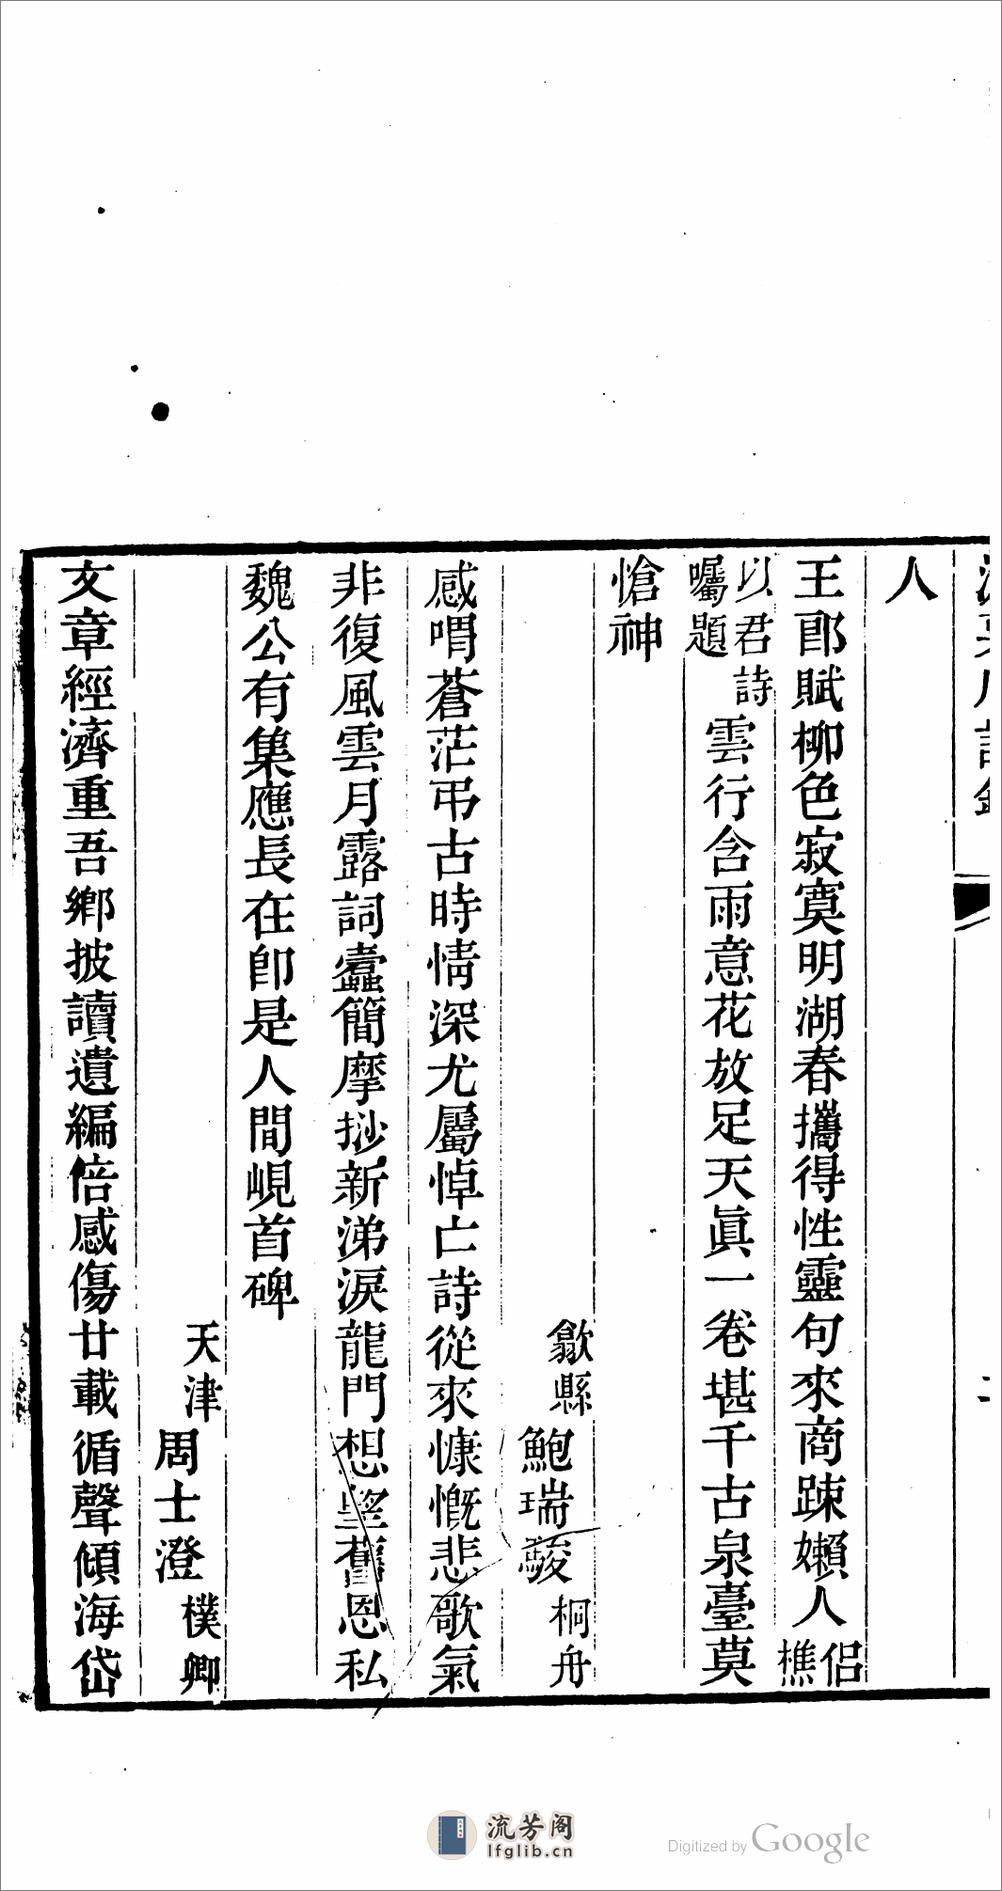 人
王郎賦柳色寂寞明湖春攜得性靈句來商踈嬾人侶樵
以君詩囑題雲行含雨意花放足天眞一卷堪千古泉臺莫
愴神
歙縣鮑瑞駿桐舟
感喟蒼茫弔古時情深尤屬悼亡詩從來慷慨悲歌氣
非復風雲月露詞蠹簡摩挲新涕淚龍門想望舊恩私
魏公有集應長在卽是人間峴首碑
天津周士澄樸卿
文章經濟重吾鄉披讀遺編倍感傷廿載循聲傾海岱
流芳阁
lfglib.cn
Digitized by Google